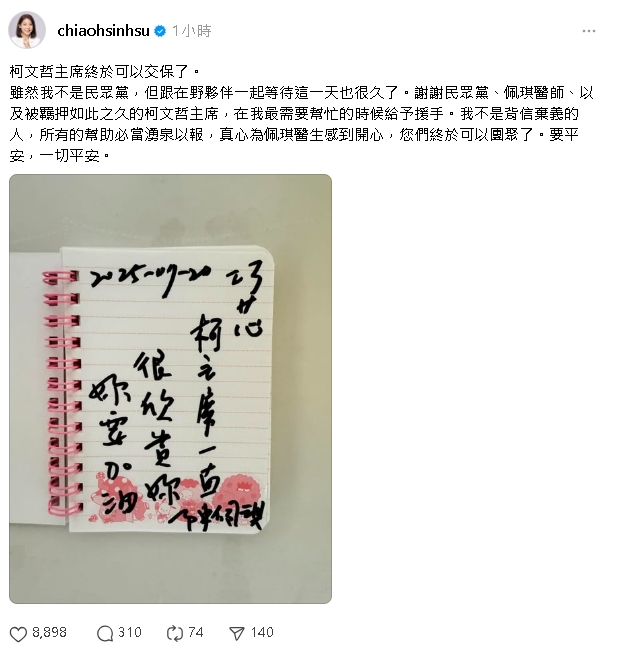 chiaohsinhsu 1小時
柯文哲主席終於可以交保了。
雖然我不是民眾黨，但跟在野夥伴一起等待這一天也很久了。謝謝民眾黨、佩琪醫師、以
及被羈押如此之久的柯文哲主席，在我最需要幫忙的時候給予援手。我不是背信棄義的
人，所有的幫助必當湧泉以報，真心為佩琪醫生感到開心，您們終於可以團聚了。要平
安，一切平安。
2025-07-20
巧芯
柯主席一直
很欣賞妳
妳要加油
陳佩琪
8,898 310 74 140